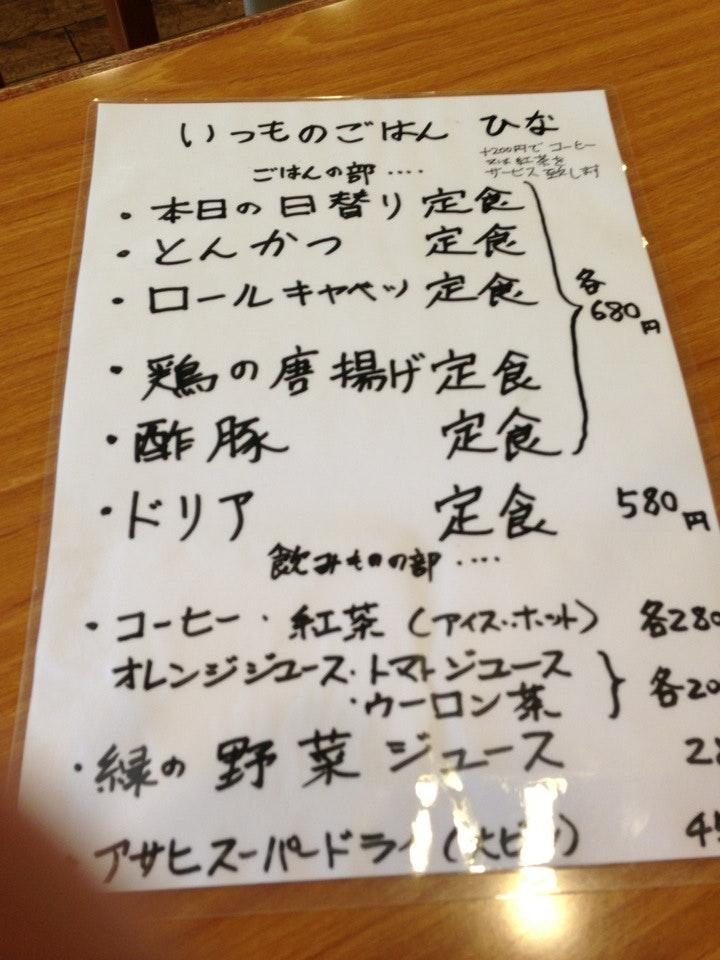 いつものごはん ひな
+200円で コーヒー
又は 紅茶を
サービス 致します
ごはんの部 ‥‥
・本日の日替り 定食
・とんかつ 定食
・ロールキャベツ 定食
・鶏の唐揚げ 定食
・酢豚 定食
各
680円
・ドリア 定食 580円
飲みものの部 ‥‥
・コーヒー・紅茶(アイス・ホット) 各280
オレンジジュース・トマトジュース
・ウーロン茶
各20
・緑の野菜ジュース 28
アサヒスーパードライ(大ビン) 45